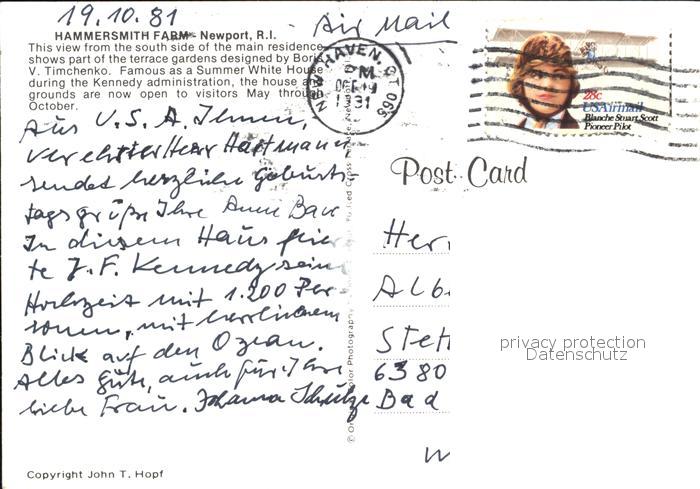 19.10.81
Air Mail
HAMMERSMITH FARM - Newport, R.I.
This view from the south side of the main residence
shows part of the terrace gardens designed by Boris
V. Timchenko. Famous as a Summer White House
during the Kennedy administration, the house and
grounds are now open to visitors May through
October.
NEW HAVEN, CT 065
PM
1981
28c
USAirmail
Blanche Stuart Scott
Pioneer Pilot
Aus U.S.A. Ihnen,
verehrter Herr Hartmann
sendet herzliche Geburts-
tagsgrüße Ihre Anne
In diesem Haus feier
te J.F. Kennedy seine
Hochzeit mit 1.200 Per
sonen, mit herrlichem
Blick auf den Ozean.
Alles Gute, auch für Ihre
liebe Frau. Johanna Schulze
Post Card
Herr
Alb
Stett
6380
Bad
W
privacy protection
Datenschutz
Color Photography
Copyright John T. Hopf